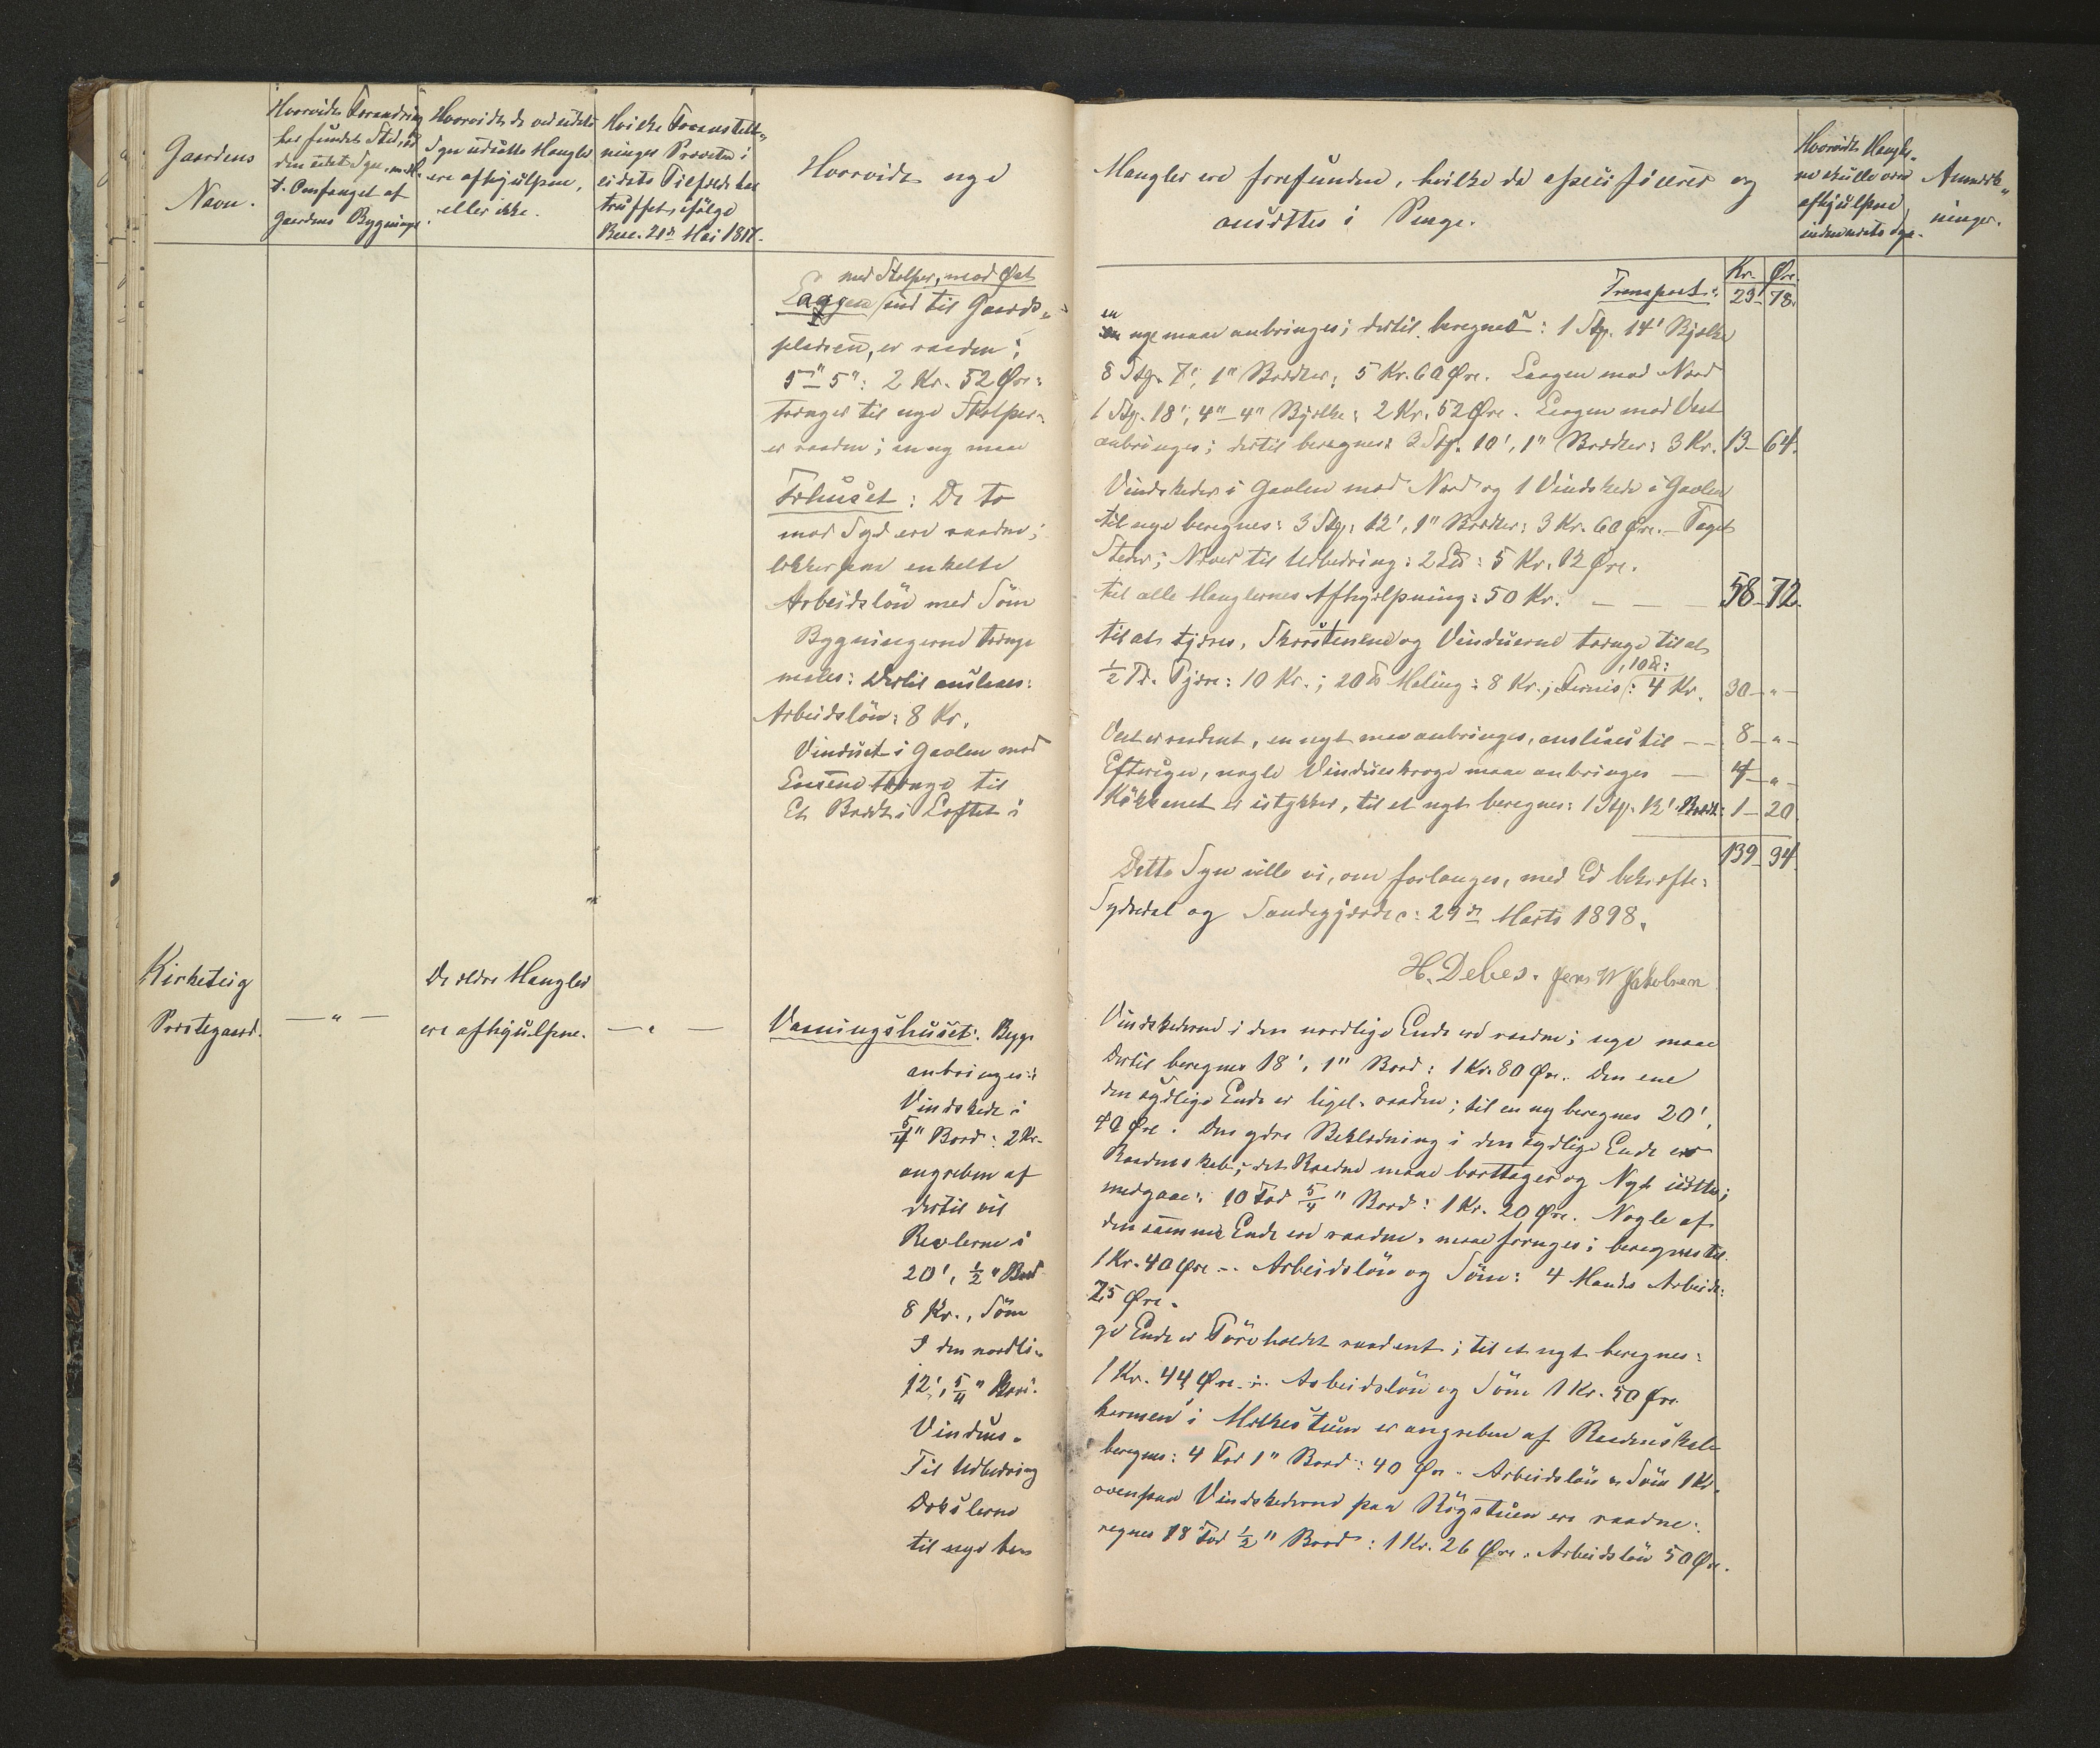 Gaardens
Navn.
Hvorvidt Forandring
har fundet Sted, ved
den sidst Syn, m. H.
t. Omfanget af
Gaardens Bygninger.
Hvorvidt de ved sidste
Syn udsatte Mangler
ere afhjulpne,
eller ikke.
Hvilke Foranstalt-
ninger Provsten i
sidste Tilfælde har
truffet ifølge
Resc. 21de Mai 1817.
Hvorvidt nye
Mangler ere forefundne, hvilke da specificeres og
ansættes i Penge.
Hvorvidt Mangler-
ne skulle være
afhjulpne
inden næste Syn.
Anmærk-
ninger.
Kr. Øre.
Transport: 29 78.
med Stolper, mod Øst
Laagen ind til Gaards-
pladsen, er raaden;
5"–5": 2 Kr. 52 Øre:
trænges til nye Stolper.
er raaden; en ny maa
Fæhuset: De to
mod Syd ere raadne;
lækker paa enkelte
Arbeidsløn med Søm
Bygningerne trænge
males: Dertil anslaaes:
Arbeidsløn: 8 Kr.
Vinduet i Gavlen mod
Luerne trænge til
Et Bræt i Loftet i
en
en nye maa anbringes; dertil beregnes: 1 Stp. 14' Bjælke
8 Stp. 7', 1" Brædder: 5 Kr. 60 Øre. Laagen mod Nord
1 Stp. 18', 4"–4" Bjælke: 2 Kr. 52 Øre. Laagen mod Vest
anbringes; dertil beregnes: 3 Stp. 10', 1" Brædder: 3 Kr. 13 – 64.
Vindskeder i Gavlen mod Nord og 1 Vindskede i Gavlen
til nye beregnes: 3 Stp. 12', 1" Brædder: 3 Kr. 60 Øre. – Taget
Steder; Næver til Udbedring: 2 : 5 Kr. 12 Øre.
til alle Manglernes Afhjælpning: 50 Kr. — — — 58 – 72.
til at tjæres, Skorstenene og Vinduerne trænge til at
, 10 ℔:
1/2 Td. Tjære: 10 Kr.; 20 ℔ Maling: 8 Kr.; Fernis: 4 Kr. 30 – " –
Vest er raadent, en nyt maa anbringes, anslaaes til – – 8 – " –
Eftersyn, nogle Vindueskroge maae anbringes — 4 – " –
Køkkenet er istykker, til et nyt beregnes: 1 Stp. 12' Brædt: 1 – 20.
139 94.
Dette Syn ville vi, om forlanges, med Ed bekræfte:
Sydredal og Sandegjærde d: 29de Marts 1898.
H. Debes. Jens W Jakobsen
Kirketeig
Præstegaard.
— " —
De ældre Mangler
ere afhjulpne.
— " —
Vaaningshuset: Bygs
anbringes:
Vindskede i
5/4" Bord: 2 Kr.
angreben af
dertil vil
Revlerne i
20', 1/2" Bord
8 Kr., Søm
I den nordli-
12', 5/4" Bord.
Vindues-
Til Udbedring
Døbslerne
til nye be-
Vindskederne i den nordlige Ende ere raadne; nye maae
Dertil beregnes 18', 1" Bord: 1 Kr. 80 Øre. Den ene
den sydlige Ende er ligel. raaden; til en ny beregnes 20'
40 Øre. Den ydre Beklædning i den sydlige Ende er
Raadenskab; det Raadne maae borttages og Nyt isættes;
medgaae: 10 Fod 5/4" Bord: 1 Kr. 20 Øre. Nogle af
den samme Ende ere raadne, maae fornyes; beregnes til
1 Kr. 40 Øre –. Arbeidsløn og Søm: 4 Mands Arbeide:
75 Øre.
ge Ende er Tørvholdet raadent; til et nyt beregnes:
1 Kr. 44 Øre. Arbeidsløn og Søm 1 Kr. 50 Øre
karmen i Melkestuen er angreben af Raadenskab
beregnes: 4 Fod 1" Bord: 40 Øre. Arbeidsløn og Søm 1 Kr.
ovenpaa Vindskederne paa Røgstuen ere raadne:
regnes 18 Fod 1/2" Bord: 1 Kr. 26 Øre. Arbeidsløn 50 Øre.